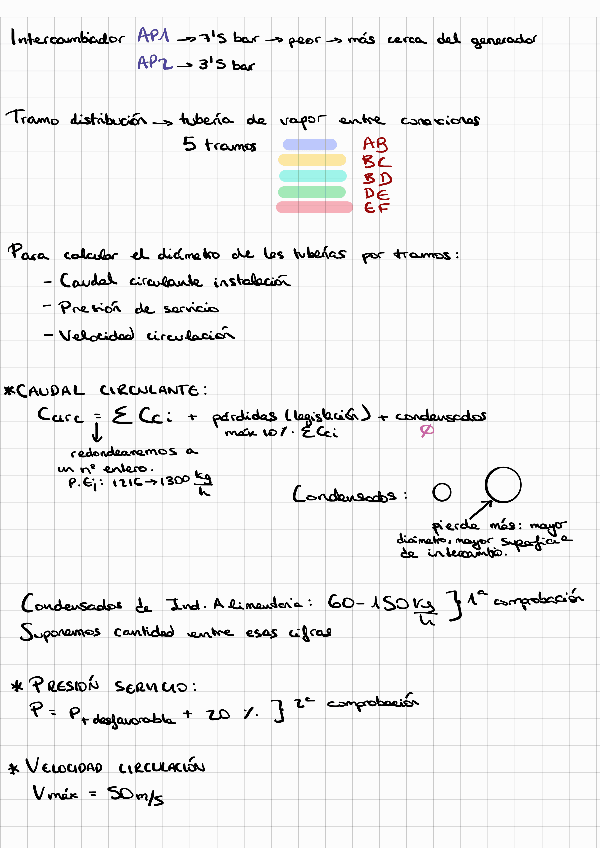 Intercambiador AP1 → 7'5 bar → peor → más cerca del generador
AP2 → 3'5 bar
Tramo distribución → tubería de vapor entre conexiones
5 tramos AB
BC
BD
DE
EF
Para calcular el diámetro de las tuberías por tramos:
- Caudal circulante instalación
- Presión de servicio
- Velocidad circulación
*CAUDAL CIRCULANTE:
Ccirc = Σ Cci + pérdidas (legislación) + condensados
máx 10%. ΣCci ∅
redondearemos a
un nº entero.
P.Ej: 1216 → 1300 kg/h
Condensados:
pierde más: mayor
diámetro, mayor superficie
de intercambio.
Condensados de Ind. Alimentaria: 60-150 kg/h } 1ª comprobación
Suponemos cantidad entre esas cifras
* PRESIÓN SERVICIO:
P = P+desfavorable + 20 %. } 2ª comprobación
* VELOCIDAD CIRCULACIÓN
Vmáx = 50 m/s